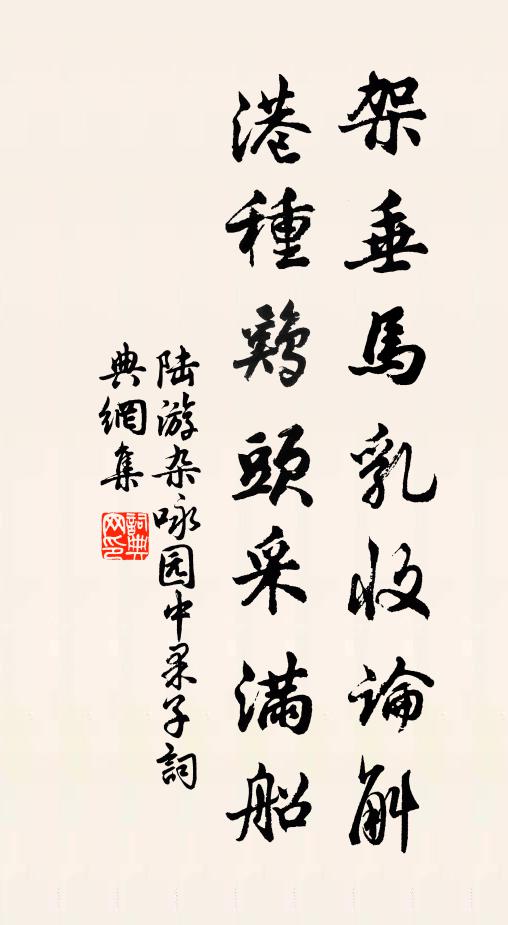 架垂馬乳收論斛
港種鷄頭采滿船
陆游杂咏园中果子詞
典網集
詞典
网印